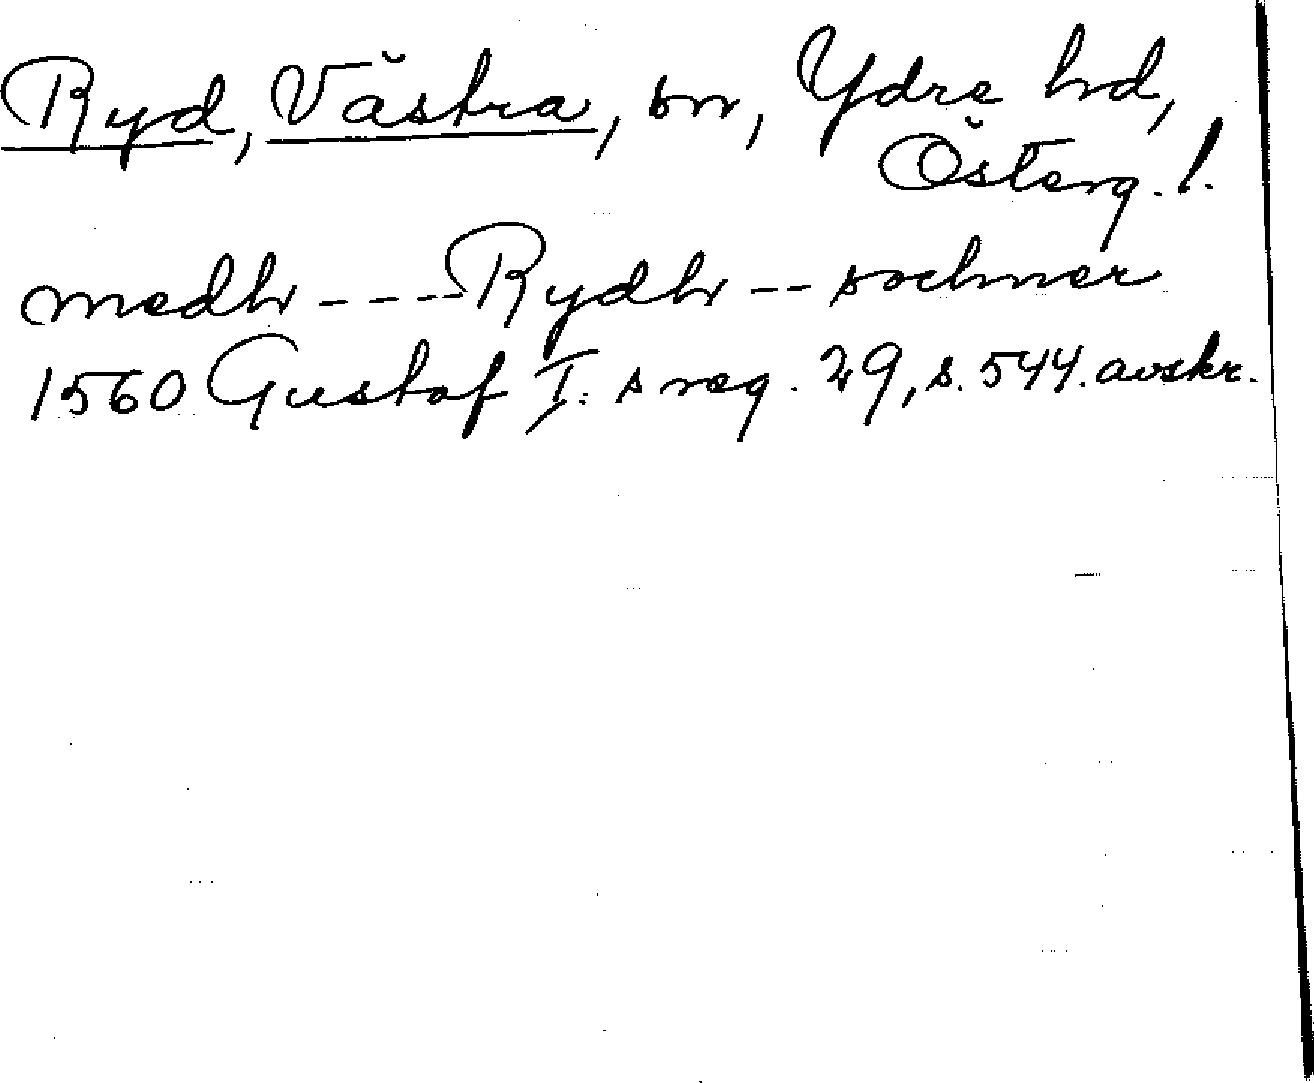 Ryd, Västra, sn, Ydre hd,
Österg. l.
medh ---- Rydh -- sochner
1560 Gustaf I:s reg. 29, s. 544. avskr.